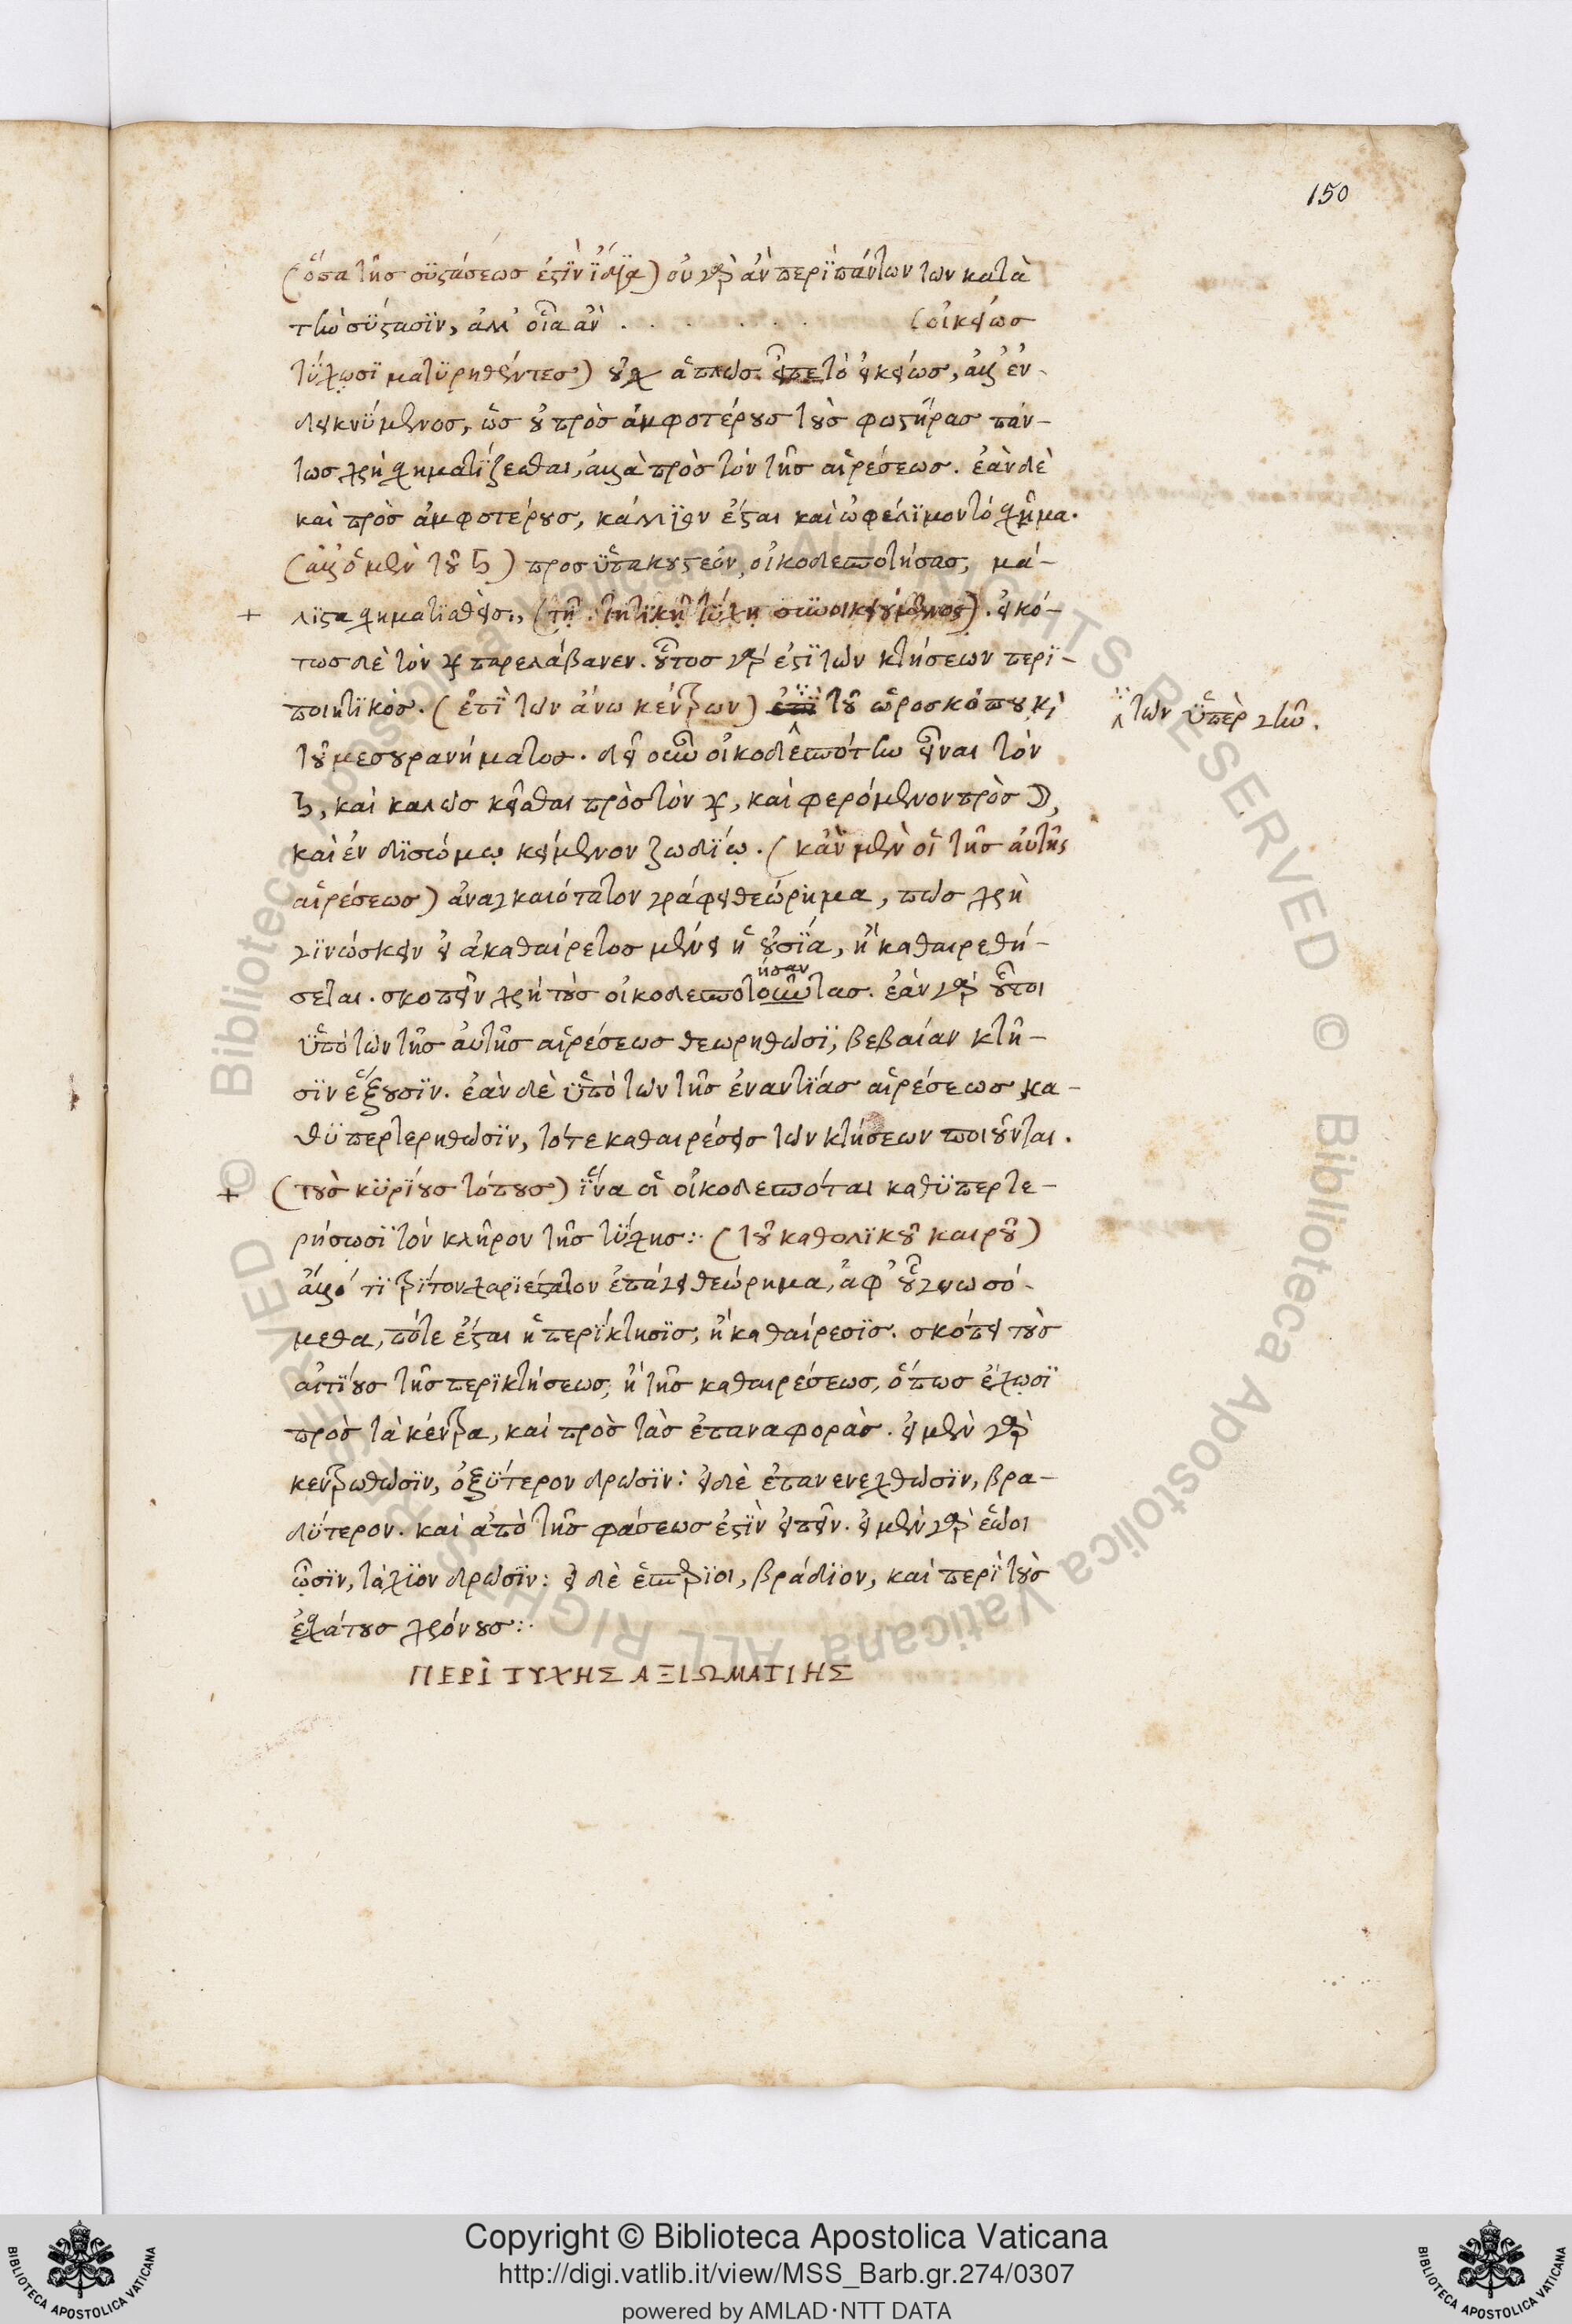 150
(ὅσα τῆς συστάσεως ἐστὶν ἴδια) οὐ γὰρ ἂν περὶ πάντων τῶν κατὰ
τὴν σύστασιν, ἀλλ' οἷα ἂν . . . . . . (οἰκείως
τύχωσι μαρτυρηθέντες) οὐχ ἁπλῶς εἶπε τὸ οἰκείως, ἀλλ' ἐν-
δεικνύμενος, ὡς οὐ πρὸς ἀμφοτέρους τοὺς φωστῆρας πάν-
τως χρὴ σχηματίζεσθαι, ἀλλὰ πρὸς τὸν τῆς αἱρέσεως. ἐὰν δὲ
καὶ πρὸς ἀμφοτέρους, κάλλιον ἔσται καὶ ὠφέλιμον τὸ σχῆμα.
(ἀλλ' ὁ μὲν τοῦ ♄) προσυπακουστέον, οἰκοδεσποτήσας, μά-
+ λιστα σχηματισθεὶς, (τῇ κτητικῇ τύχῃ συνοικειούμενος). εἰκό-
τως δὲ τὸν ♃ παρελάβανεν. οὗτος γάρ ἐστι τῶν κτήσεων περι-
ποιητικός. (ἐπὶ τῶν ἄνω κέντρων) ἐπὶ τοῦ ὡροσκόπου καὶ
τῶν ὑπὲρ γῆν.
τοῦ μεσουρανήματος. δεῖ οὖν οἰκοδεσπότην εἶναι τὸν
♄, καὶ καλῶς κεῖσθαι πρὸς τὸν ♃, καὶ φερόμενον πρὸς ☽,
καὶ ἐν δισώμῳ κείμενον ζωδίῳ. (κἂν μὲν οἱ τῆς αὐτῆς
αἱρέσεως) ἀναγκαιότατον γράφει θεώρημα, πῶς χρὴ
γινώσκειν εἰ ἀκαθαίρετος μένει ἡ οὐσία, ἢ καθαιρεθή-
ήσαν
σεται. σκοπεῖν χρὴ τοὺς οἰκοδεσποτοῦντας. ἐὰν γὰρ οὗτοι
ὑπὸ τῶν τῆς αὐτῆς αἱρέσεως θεωρηθῶσι, βεβαίαν κτῆ-
σιν ἕξουσιν. ἐὰν δὲ ὑπὸ τῶν τῆς ἐναντίας αἱρέσεως κα-
θυπερτερηθῶσιν, τότε καθαιρέσεις τῶν κτήσεων ποιοῦνται.
+ (τοὺς κυρίους τόπους) ἵνα οἱ οἰκοδεσπόται καθυπερτε-
ρήσωσι τὸν κλῆρον τῆς τύχης:· (τοῦ καθολικοῦ καιροῦ)
ἄλλό τι τρίτον χαριέστατον ἐπάγει θεώρημα, ἀφ' οὗ γνωσό-
μεθα, πότε ἔσται ἡ περίκτησις, ἢ καθαίρεσις. σκόπει τοὺς
αἰτίους τῆς περικτήσεως, ἢ τῆς καθαιρέσεως, ὅπως ἔχωσι
πρὸς τὰ κέντρα, καὶ πρὸς τὰς ἐπαναφοράς. εἰ μὲν γὰρ
κεντρωθῶσιν, ὀξύτερον δρῶσιν: εἰ δὲ ἐπανενεχθῶσιν, βρα-
δύτερον. καὶ ἀπὸ τῆς φάσεως ἐστὶν εἰπεῖν. εἰ μὲν γὰρ ἑῷοι
ὦσιν, τάχιον δρῶσιν: εἰ δὲ ἑσπέριοι, βράδιον, καὶ περὶ τοὺς
ἐσχάτους χρόνους:·
ΠΕΡῚ ΤΥΧΗΣ ΑΞΙΩΜΑΤΙΚΗΣ
© Biblioteca Apostolica Vaticana ALL RIGHTS RESERVED
Copyright © Biblioteca Apostolica Vaticana
http://digi.vatlib.it/view/MSS_Barb.gr.274/0307
powered by AMLAD·NTT DATA
BIBLIOTECA APOSTOLICA VATICANA
BIBLIOTECA APOSTOLICA VATICANA